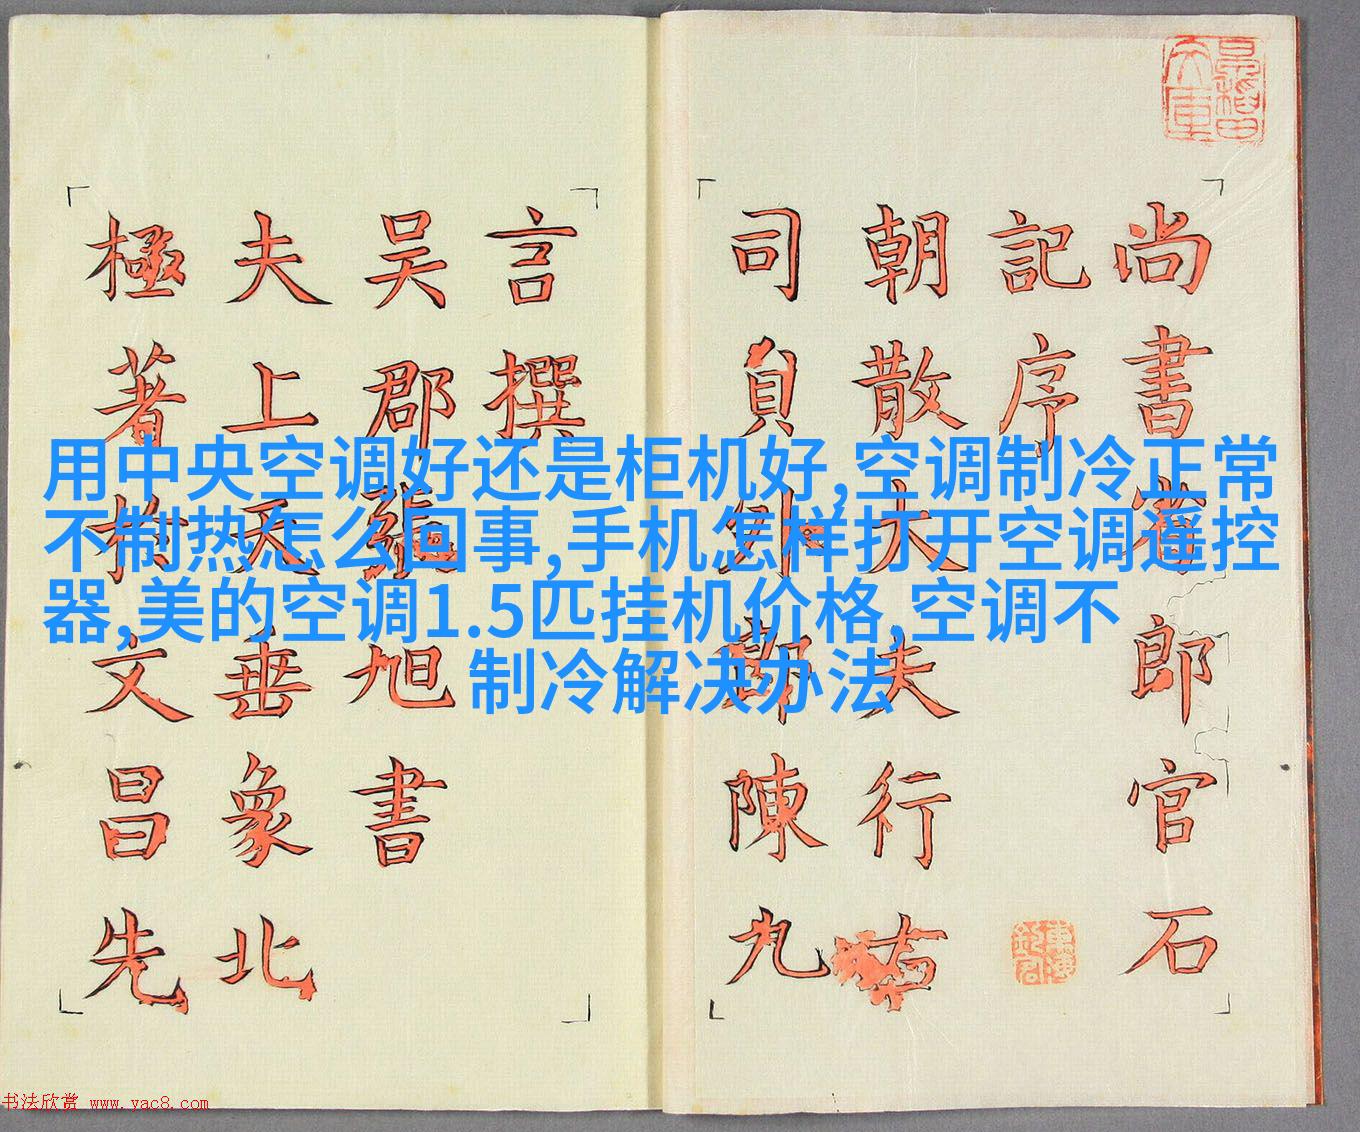 尚書省郎官石
記序
朝散大夫行右
司員外郎陳九
言撰
吳郡張旭書
夫上天垂象北
極著扵文昌先
用中央空调好还是柜机好,空调制冷正常
不制热怎么回事,手机怎样打开空调遥控
器,美的空调1.5匹挂机价格,空调不
制冷解决办法
书法欣赏 www.yac8.com